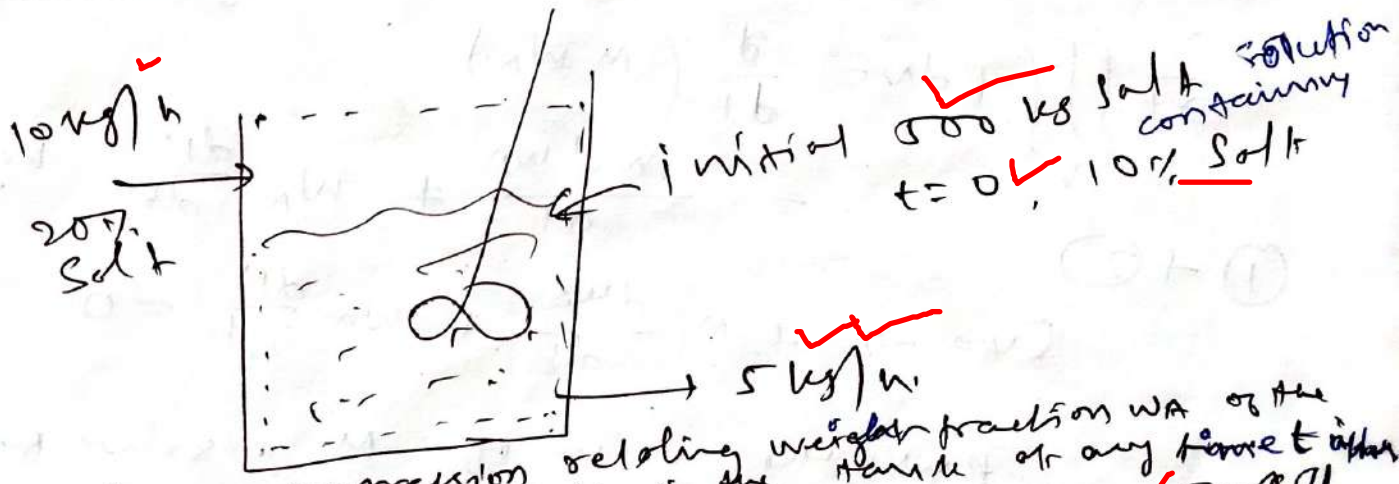 10 kg/h
20%
Salt
initial 500 kg salt solution
containing
t = 0, 10% Salt
5 kg/h.
relating weight fraction WA of the
tank at any time t